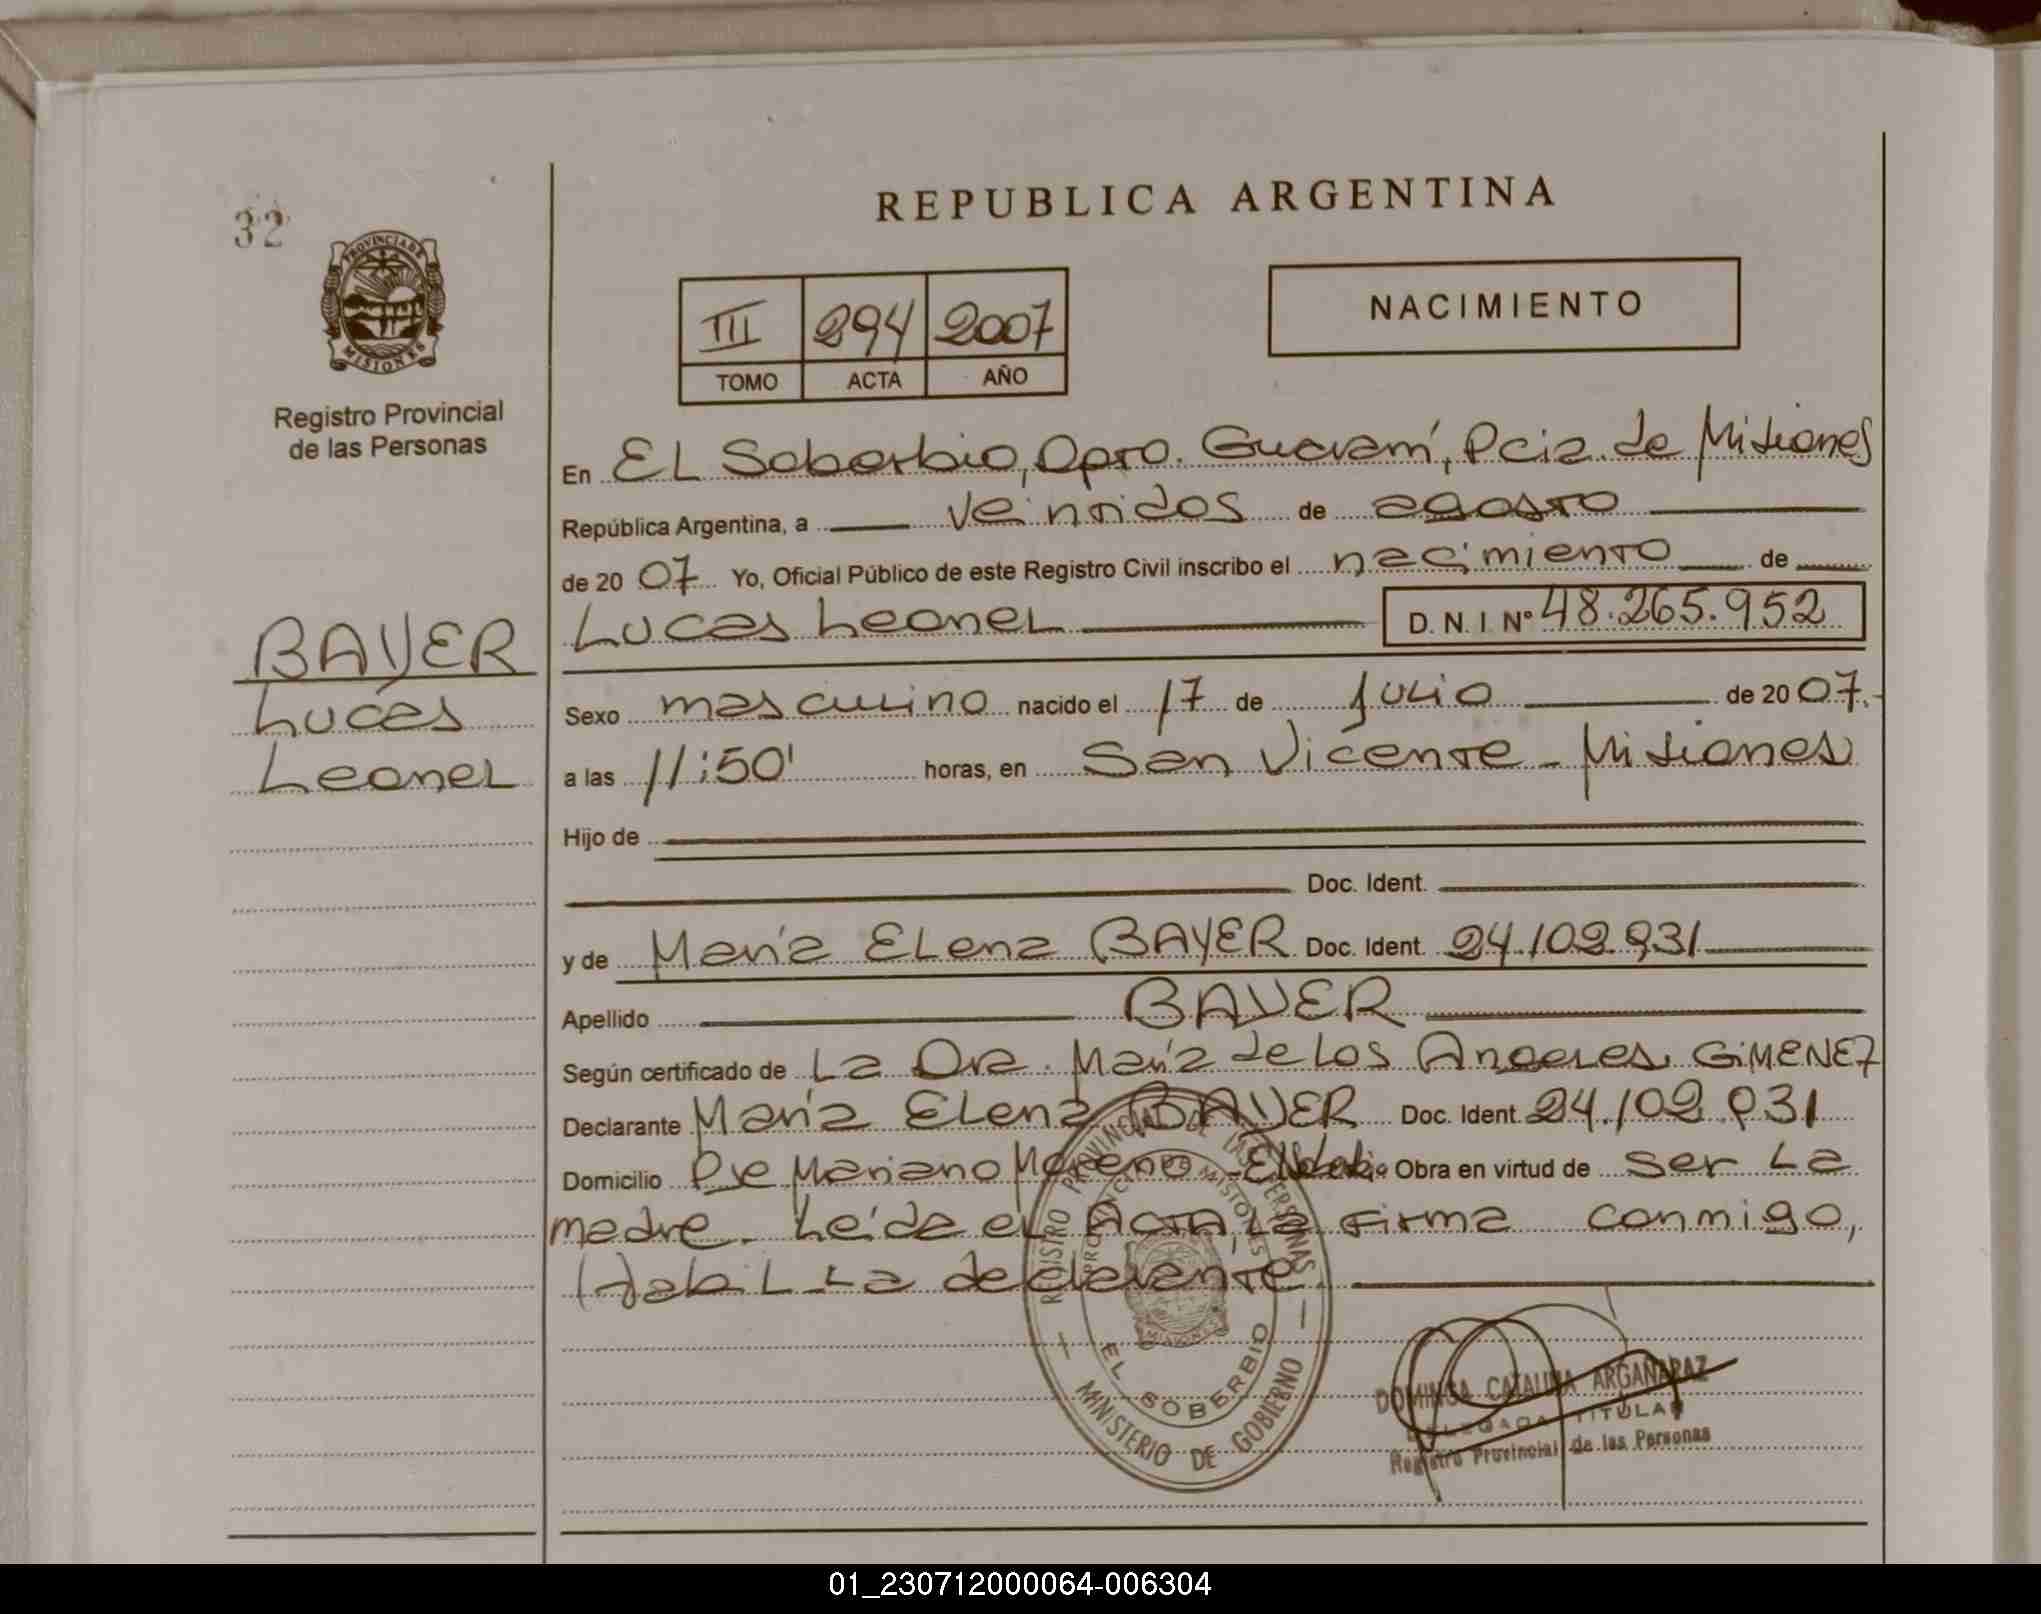 32
PROVINCIA DE
MISIONES
Registro Provincial
de las Personas
BAYER
Lucas
Leonel
REPUBLICA ARGENTINA
III 294 2007
TOMO ACTA AÑO
NACIMIENTO
En EL Soberbio, Dpto. Guaraní, Pcia. de Misiones
República Argentina, a veintidos de agosto
de 20 07 Yo, Oficial Público de este Registro Civil inscribo el nacimiento de
Lucas Leonel D.N.I Nº 48.265.952
Sexo masculino nacido el 17 de julio de 20 07.-
a las 11:50' horas, en San Vicente - Misiones
Hijo de
Doc. Ident.
y de María Elena BAYER Doc. Ident. 24.102.931
Apellido BAYER
Según certificado de La Dra. María de Los Angeles GiMENEZ
Declarante María Elena BAYER Doc. Ident. 24.102.931
Domicilio Pje Mariano Moreno - El Soberbio Obra en virtud de ser La
madre. Leída el Acta, La firma conmigo,
Habil La declarante
REGISTRO PROVINCIAL DE LAS PERSONAS
PROVINCIA DE MISIONES
MISIONES
EL SOBERBIO
MINISTERIO DE GOBIERNO
DOMINGA CATALINA ARGAÑARAZ
DELEGADA TITULAR
Registro Provincial de las Personas
01_230712000064-006304